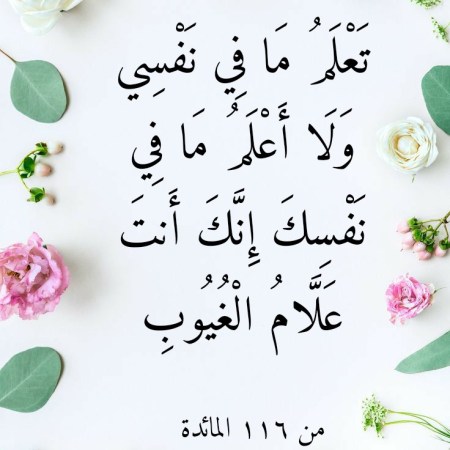 تَعْلَمُ مَا فِي نَفْسِي
وَلَا أَعْلَمُ مَا فِي
نَفْسِكَ إِنَّكَ أَنتَ
عَلَّامُ الْغُيُوبِ
من ١١٦ المائدة